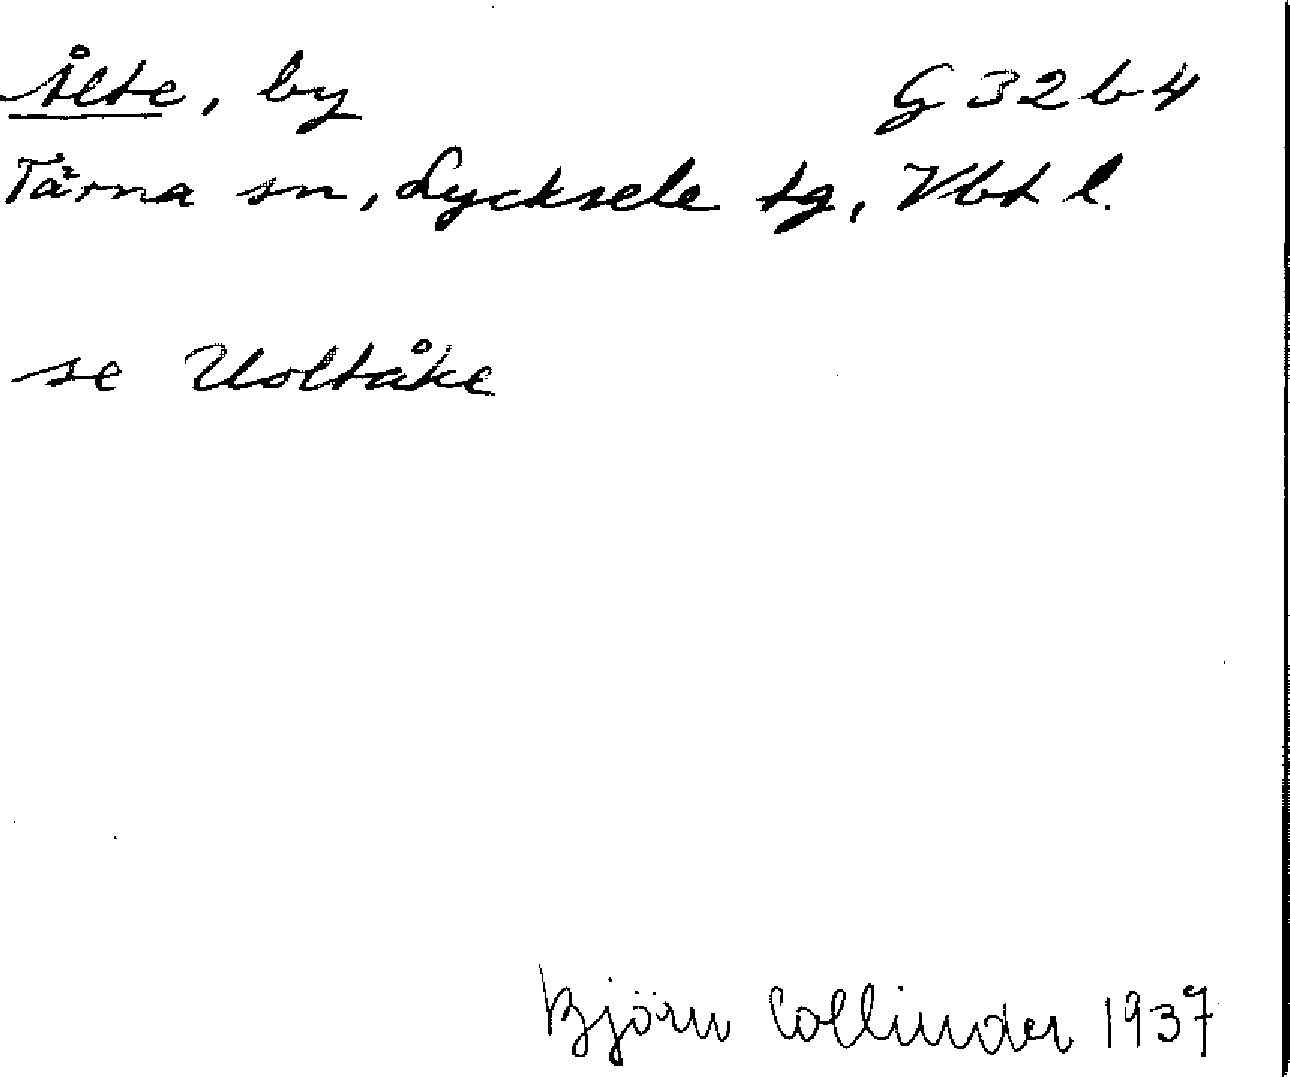 Ålte, by G 32 b 4
Tärna sn, Lycksele tg, Vbt l.
se Uoltåke
Björn Collinder 1937